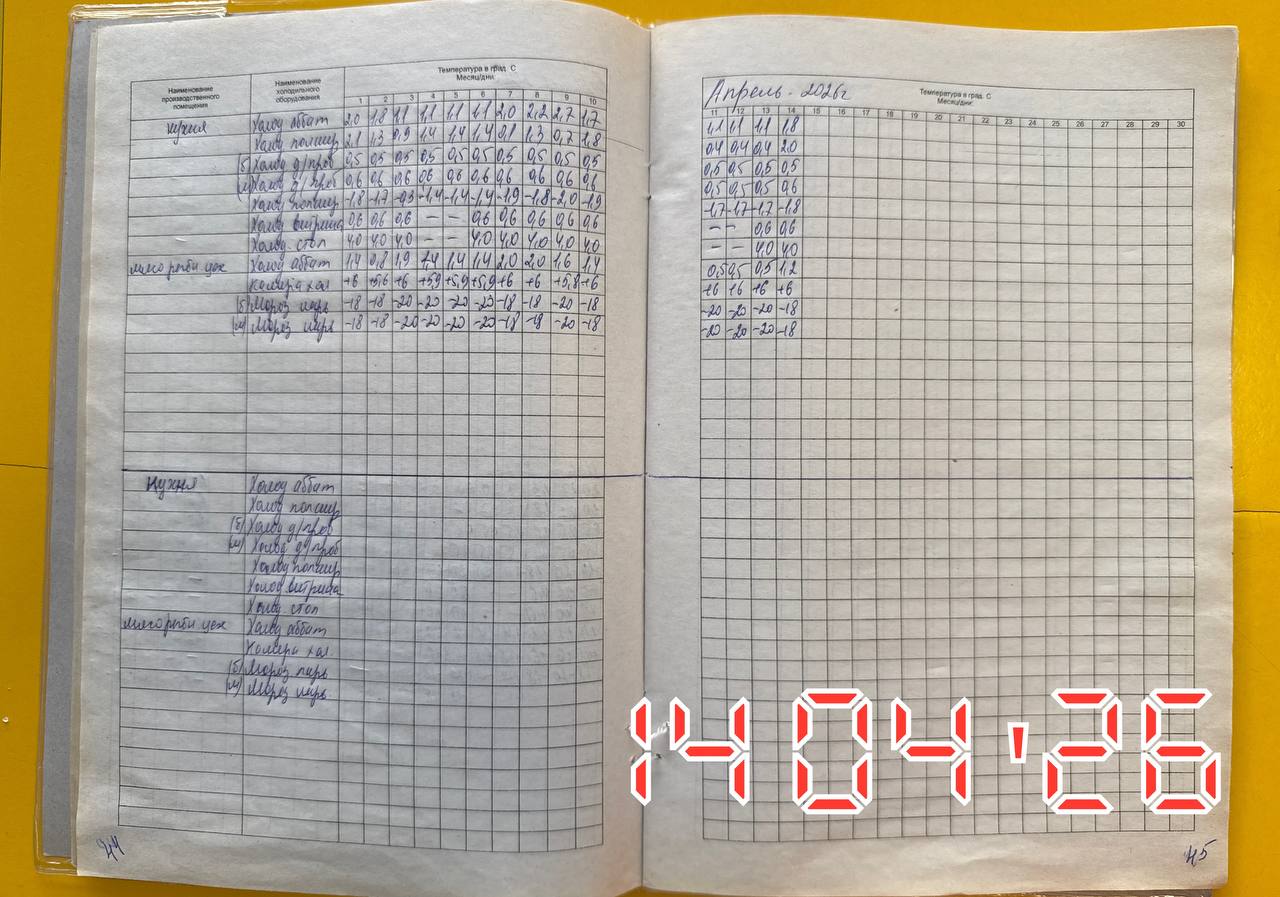 Наименование производственного помещения
Наименование холодильного оборудования
Температура в град. С
Месяц/дни:
1 2 3 4 5 6 7 8 9 10
кухня Холод аббат 2,0 1,8 1,1 1,1 1,1 1,1 2,0 2,2 2,7 1,7
Холод полаир 2,1 1,3 0,9 1,4 1,4 1,4 2,1 1,3 0,7 1,8
(б) Холод д/проб 0,5 0,5 0,5 0,5 0,5 0,5 0,5 0,5 0,5 0,5
(м) Холод д/проб 0,6 0,6 0,6 0,6 0,6 0,6 0,6 0,6 0,6 0,6
Холод полаир -1,8 -1,7 -0,3 -1,4 -1,4 -1,4 -1,9 -1,8 -2,0 -1,9
Холод витрина 0,6 0,6 0,6 – – 0,6 0,6 0,6 0,6 0,6
Холод. стол 4,0 4,0 4,0 – – 4,0 4,0 4,0 4,0 4,0
мясо рыбн цех Холод аббат 1,4 0,8 1,9 1,4 1,4 1,4 2,0 2,0 1,6 1,4
Камера хол +6 +5,6 +6 +5,9 +5,9 +5,9 +6 +6 +5,8 +6
(б) Мороз ларь -18 -18 -20 -20 -20 -20 -18 -18 -20 -18
(м) Мороз ларь -18 -18 -20 -20 -20 -20 -18 -18 -20 -18
Кухня Холод аббат
Холод полаир
(б) Холод д/проб
(м) Холод д/проб
Холод полаир
Холод витрина
Холод. стол
мясо рыбн цех Холод аббат
Камера хол
(б) Мороз ларь
(м) Мороз ларь
44
Апрель - 2026г
Температура в град. С
Месяц/дни:
11 12 13 14 15 16 17 18 19 20 21 22 23 24 25 26 27 28 29 30
1,1 1,1 1,1 1,8
0,4 0,4 0,4 2,0
0,5 0,5 0,5 0,5
0,5 0,5 0,5 0,6
-1,7 -1,7 -1,7 -1,8
– – 0,6 0,6
– – 4,0 4,0
0,5 0,5 0,5 1,2
+6 +6 +6 +6
-20 -20 -20 -18
-20 -20 -20 -18
45
14 04 '26